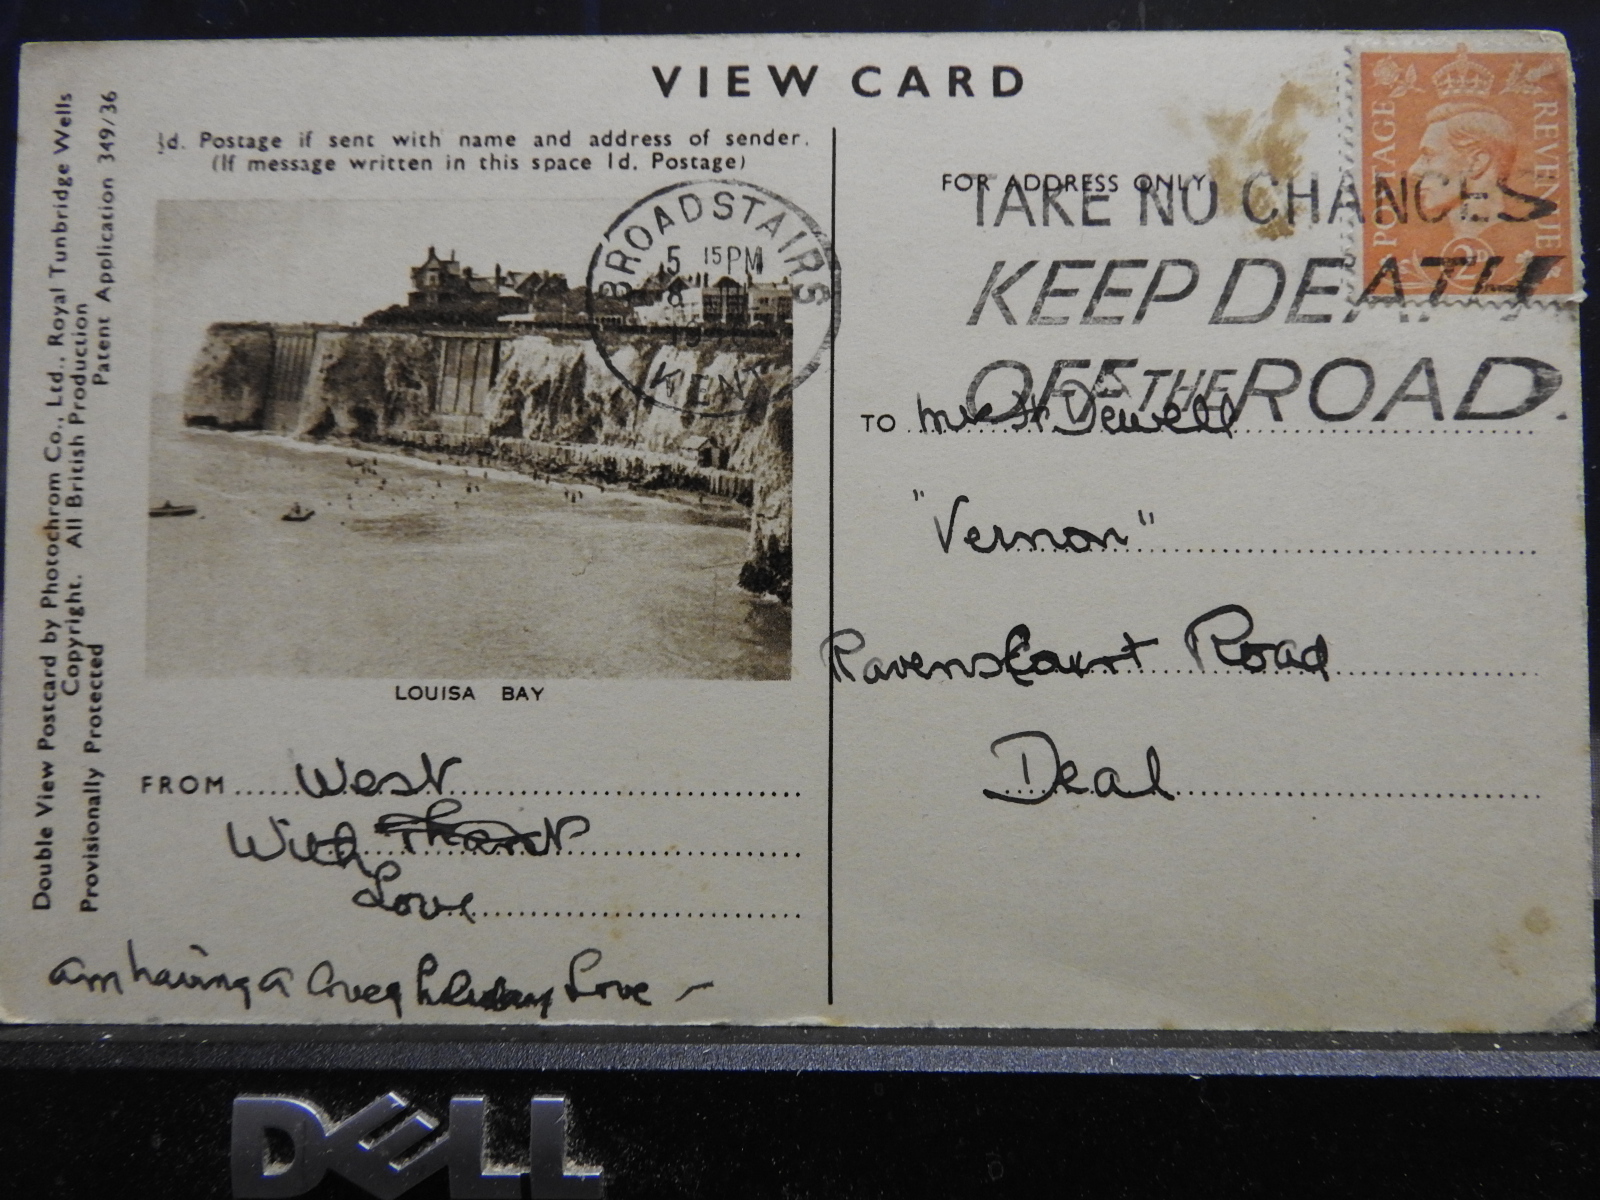 VIEW CARD
½d. Postage if sent with name and address of sender.
(If message written in this space 1d. Postage)
Double View Postcard by Photochrom Co., Ltd., Royal Tunbridge Wells
Copyright. All British Production
Provisionally Protected Patent Application 349/36
BROADSTAIRS
5 15PM
KENT
LOUISA BAY
FROM West
With
Love
am having a lovely holiday Love
FOR ADDRESS ONLY
TAKE NO CHANCES
KEEP DEATH
OFF THE ROAD.
POSTAGE REVENUE
2D
TO Dewell
"Vernon"
Ravenscourt Road
Deal
DELL